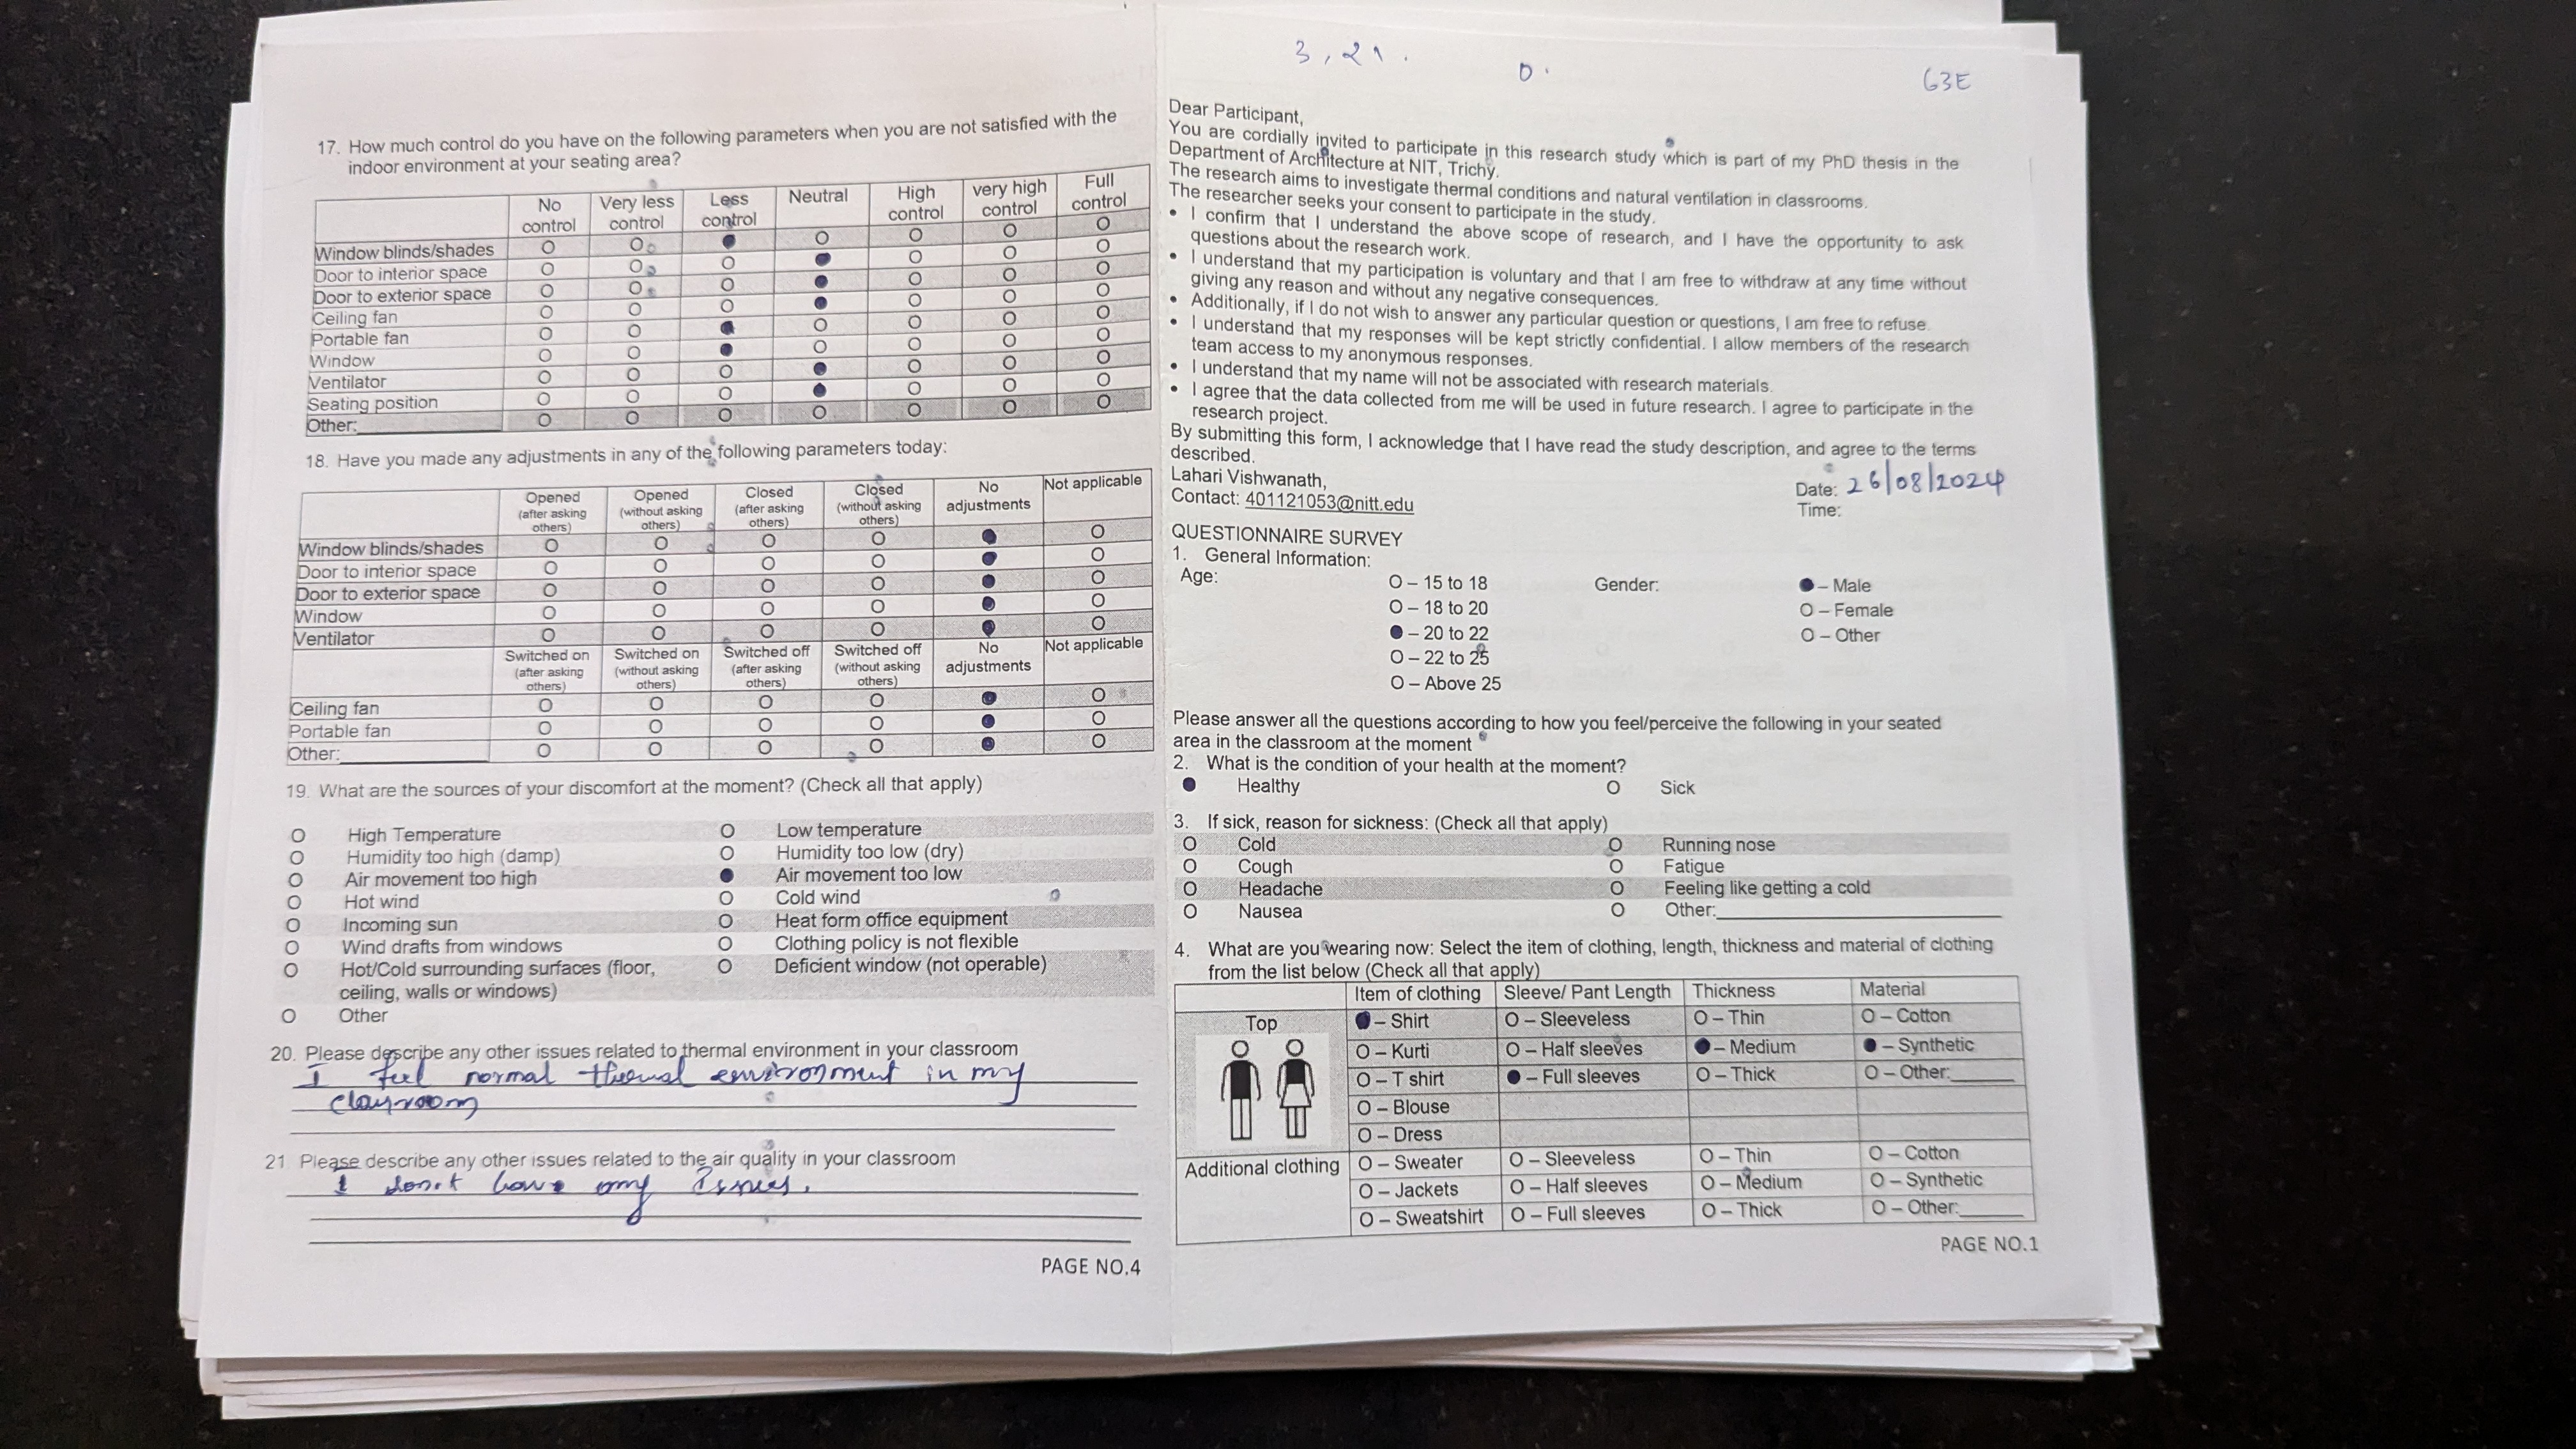 17. How much control do you have on the following parameters when you are not satisfied with the
indoor environment at your seating area?
No control Very less control Less control Neutral High control very high control Full control
Window blinds/shades O O ● O O O O
Door to interior space O O O ● O O O
Door to exterior space O O O ● O O O
Ceiling fan O O O ● O O O
Portable fan O O ● O O O O
Window O O ● O O O O
Ventilator O O O ● O O O
Seating position O O O ● O O O
Other: O O O O O O O
18. Have you made any adjustments in any of the following parameters today:
Opened (after asking others) Opened (without asking others) Closed (after asking others) Closed (without asking others) No adjustments Not applicable
Window blinds/shades O O O O ● O
Door to interior space O O O O ● O
Door to exterior space O O O O ● O
Window O O O O ● O
Ventilator O O O O ● O
Switched on (after asking others) Switched on (without asking others) Switched off (after asking others) Switched off (without asking others) No adjustments Not applicable
Ceiling fan O O O O ● O
Portable fan O O O O ● O
Other: O O O O ● O
19. What are the sources of your discomfort at the moment? (Check all that apply)
O High Temperature O Low temperature
O Humidity too high (damp) O Humidity too low (dry)
O Air movement too high ● Air movement too low
O Hot wind O Cold wind
O Incoming sun O Heat form office equipment
O Wind drafts from windows O Clothing policy is not flexible
O Hot/Cold surrounding surfaces (floor, O Deficient window (not operable)
ceiling, walls or windows)
O Other
20. Please describe any other issues related to thermal environment in your classroom
I feel normal thermal environment in my
classroom
21. Please describe any other issues related to the air quality in your classroom
I don't have any issues.
PAGE NO.4
3, 21.
0.
63E
Dear Participant,
You are cordially invited to participate in this research study which is part of my PhD thesis in the
Department of Architecture at NIT, Trichy.
The research aims to investigate thermal conditions and natural ventilation in classrooms.
The researcher seeks your consent to participate in the study.
• I confirm that I understand the above scope of research, and I have the opportunity to ask
questions about the research work.
• I understand that my participation is voluntary and that I am free to withdraw at any time without
giving any reason and without any negative consequences.
• Additionally, if I do not wish to answer any particular question or questions, I am free to refuse.
• I understand that my responses will be kept strictly confidential. I allow members of the research
team access to my anonymous responses.
• I understand that my name will not be associated with research materials.
• I agree that the data collected from me will be used in future research. I agree to participate in the
research project.
By submitting this form, I acknowledge that I have read the study description, and agree to the terms
described.
Lahari Vishwanath,
Contact: 401121053@nitt.edu
Date: 26/08/2024
Time:
QUESTIONNAIRE SURVEY
1. General Information:
Age: O – 15 to 18 Gender: ● – Male
O – 18 to 20 O – Female
● – 20 to 22 O – Other
O – 22 to 25
O – Above 25
Please answer all the questions according to how you feel/perceive the following in your seated
area in the classroom at the moment
2. What is the condition of your health at the moment?
● Healthy O Sick
3. If sick, reason for sickness: (Check all that apply)
O Cold O Running nose
O Cough O Fatigue
O Headache O Feeling like getting a cold
O Nausea O Other:
4. What are you wearing now: Select the item of clothing, length, thickness and material of clothing
from the list below (Check all that apply)
Item of clothing Sleeve/ Pant Length Thickness Material
Top ● – Shirt O – Sleeveless O – Thin O – Cotton
O – Kurti O – Half sleeves ● – Medium ● – Synthetic
O – T shirt ● – Full sleeves O – Thick O – Other:
O – Blouse
O – Dress
Additional clothing O – Sweater O – Sleeveless O – Thin O – Cotton
O – Jackets O – Half sleeves O – Medium O – Synthetic
O – Sweatshirt O – Full sleeves O – Thick O – Other:
PAGE NO.1